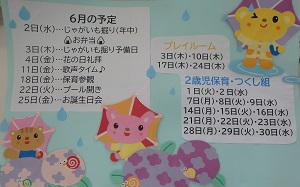 6月の予定
2日(水)…じゃがいも掘り(年中)
お弁当
3日(木)…じゃがいも掘り予備日
4日(金)…花の日礼拝
11日(金)…歌声タイム♪
18日(金)…保育参観
22日(火)…プール開き
25日(金)…お誕生日会
プレイルーム
3日(木)・10日(木)
17日(木)・24日(木)
2歳児保育・つくし組
1日(火)・2日(水)
7日(月)・8日(火)・9日(水)
14日(月)・15日(火)・16日(水)
21日(月)・22日(火)・23日(水)
28日(月)・29日(火)・30日(水)